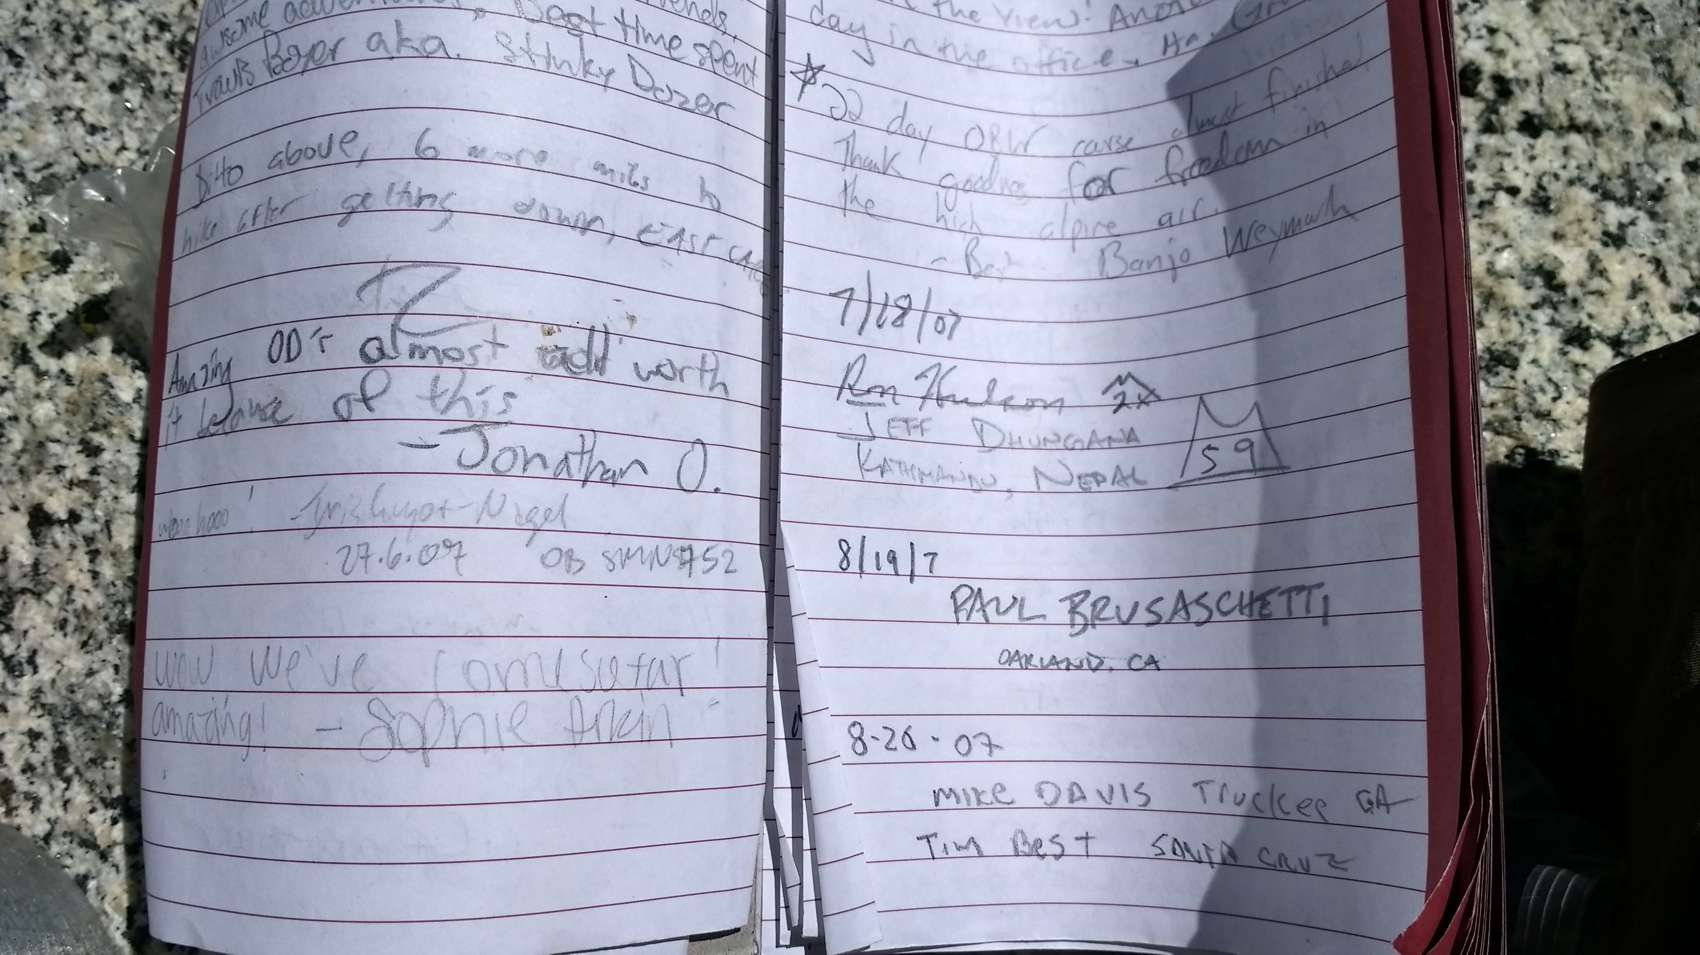 Awsome adventures. Best time spent
Travis Bozer aka. Stinky Dozer
Ditto above, 6 more miles to
hike after getting down, EAST
Amazing OD's almost worth
it because of this
- Jonathan O.
woohooo! -Nagel
27.6.07 OB
wow we've come so far!
amazing! - Sophie Arkin
the view! Another
day in the office. Ha.
22 day OBW course almost finished
Thank goodness for freedom in
the high alpine air.
- Banjo Weymouth
7/18/07
Ron Hudson 2X
JEFF DHUNGANA
KATHMANDU, NEPAL 59
8/19/7
PAUL BRUSASCHETTI
OAKLAND, CA
8-26-07
MIKE DAVIS Truckee CA
Tim Best SANTA CRUZ